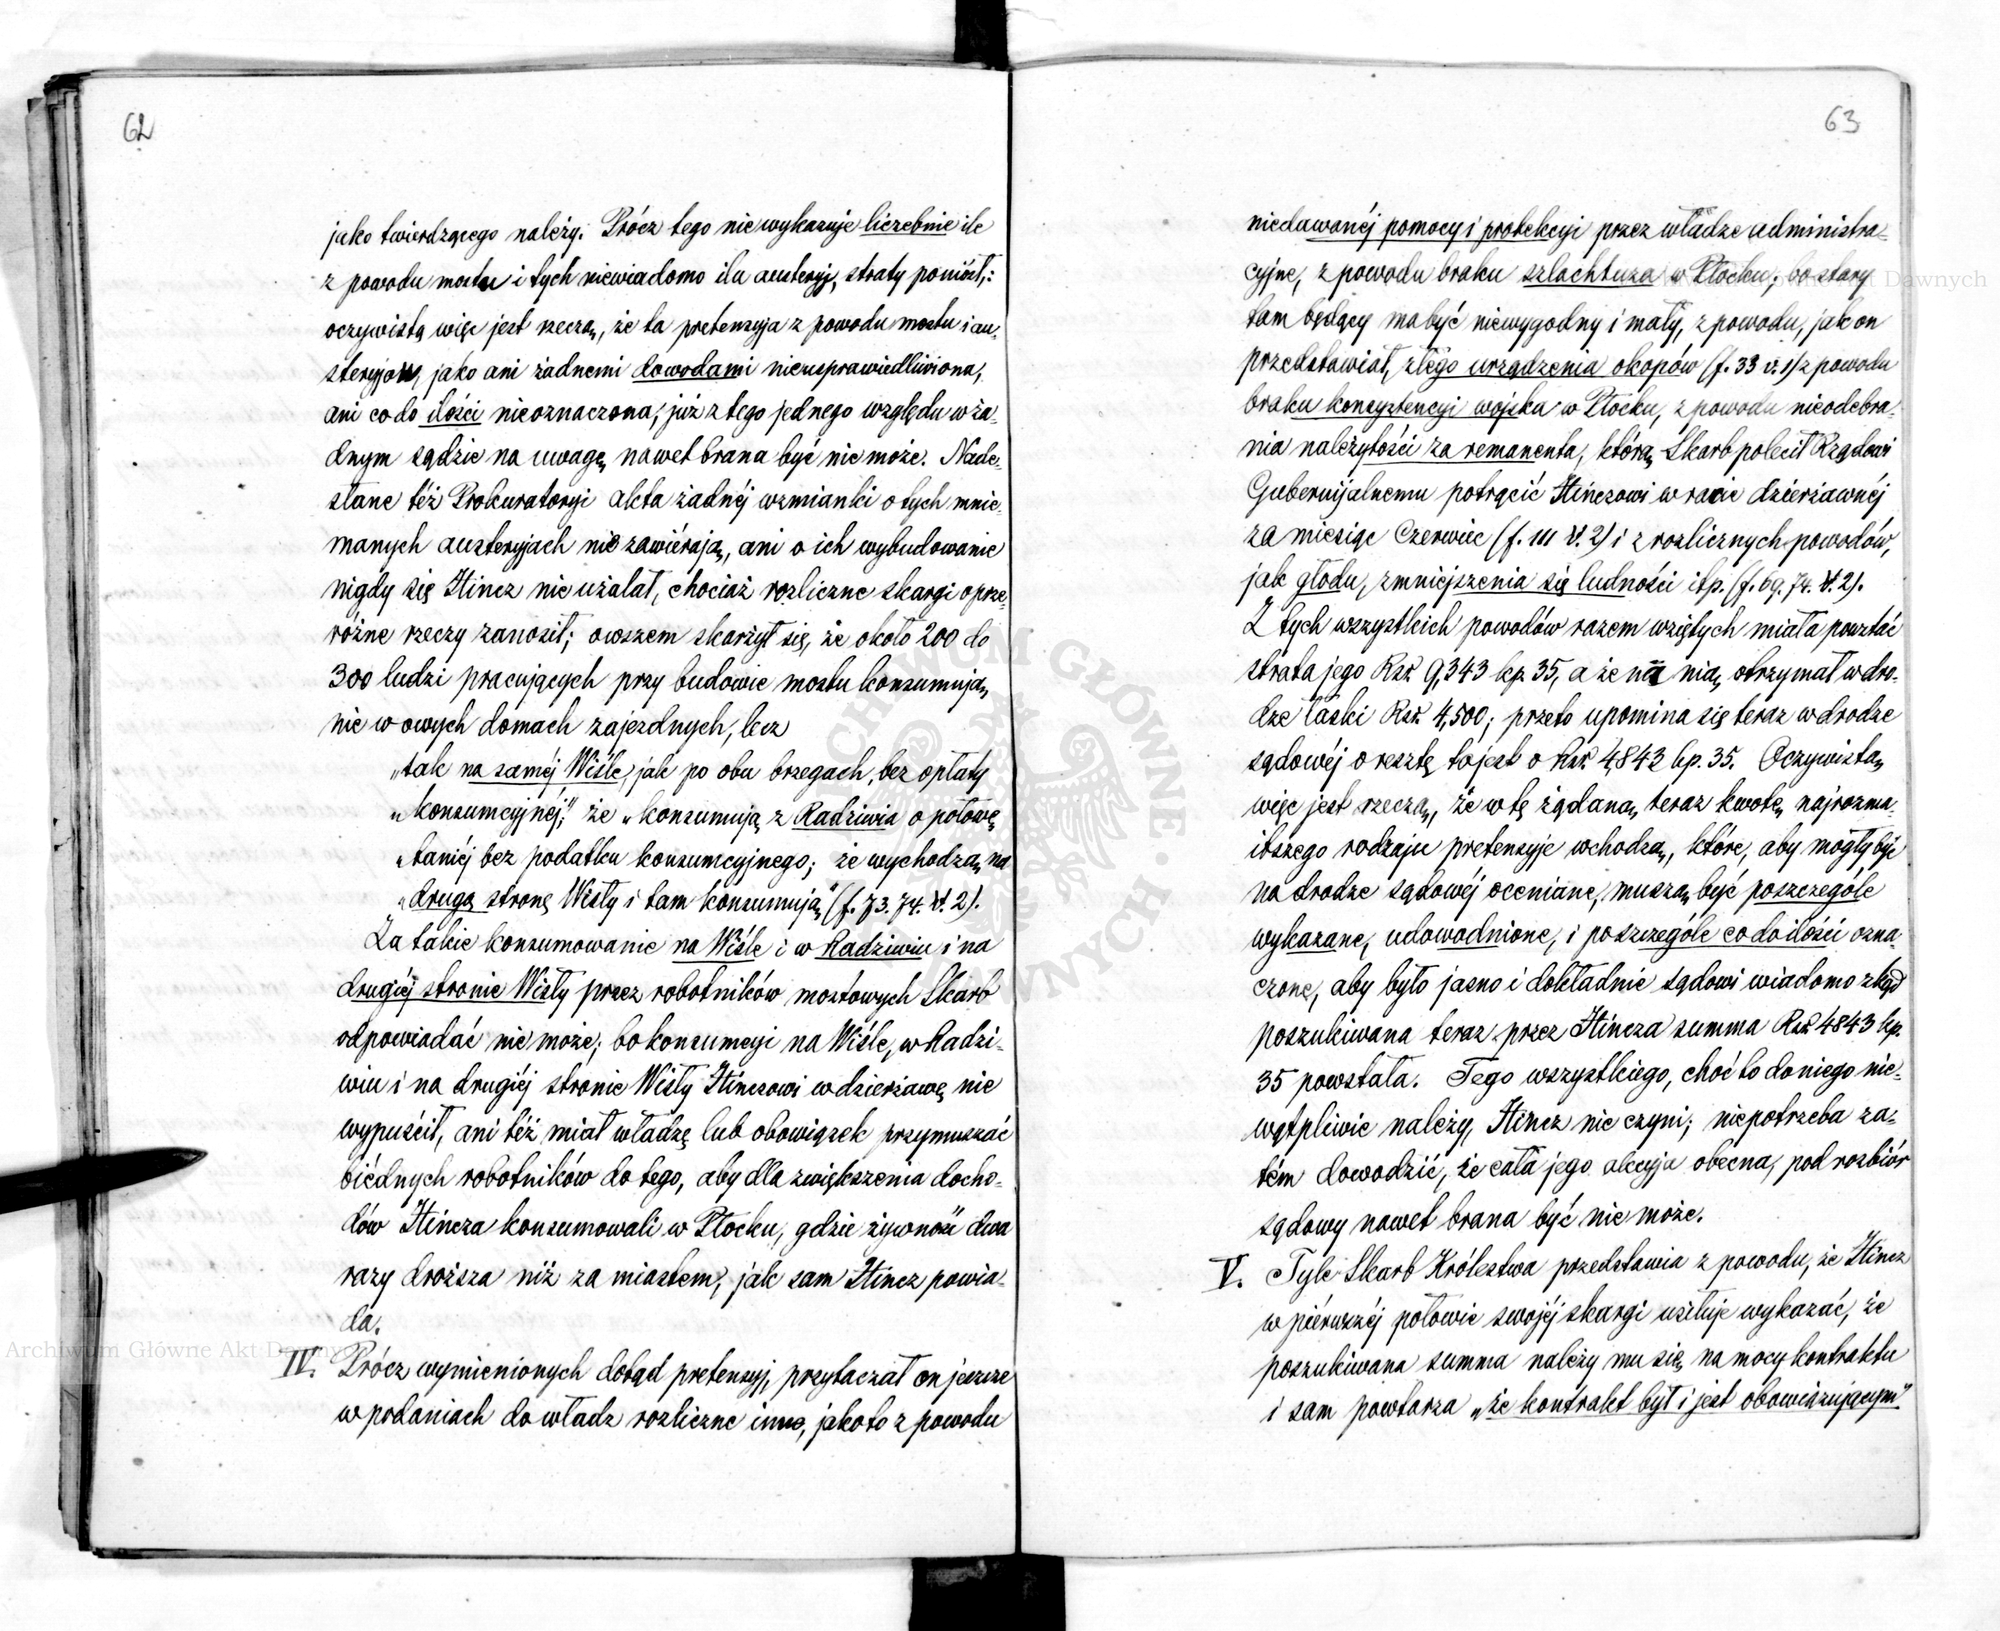 62
jako twierdzącego należy. Prócz tego nie wykazuje liczebnie ile
z powodu mostu i tych niewiadomo ilu austeryj, straty poniósł;
oczywistą więc jest rzeczą, że ta pretensyja z powodu mostu i au-
steryjów, jako ani żadnemi dowodami nieusprawiedliwiona,
ani co do ilości nieoznaczona, już z tego jednego względu w ża-
dnym sądzie na uwagę nawet brana być nie może. Nade-
słane téż Prokuratoryi akta żadnéj wzmianki o tych mnie-
manych austeryjach nie zawiérają, ani o ich wybudowanie
nigdy się Hincz nie użalał, chociaż rozliczne skargi o prze-
różne rzeczy zanosił; owszem skarżył się, że około 200 do
300 ludzi pracujących przy budowie mostu konsumują,
nie w owych domach zajezdnych, lecz
„tak na saméj Wiśle, jak po obu brzegach, bez opłaty
„konsumcyjnéj;" że „konsumują z Radziwia o połowę
„taniéj bez podatku konsumcyjnego; że wychodzą na
„drugą stronę Wisły i tam konsumują" (f. 73. 74. V. 2).
Za takie konsumowanie na Wiśle i w Radziwiu i na
drugiéj stronie Wisły przez robotników mostowych Skarb
odpowiadać nie może; bo konsumcyi na Wiśle, w Radzi-
wiu i na drugiéj stronie Wisły Hinczowi w dzierżawę nie
wypuścił, ani téż miał władzę lub obowiązek przymuszać
biédnych robotników do tego, aby dla zwiększenia docho-
dów Hincza konsumowali w Płocku, gdzie żywność dwa
razy droższa niż za miastem, jak sam Hincz powia-
da.
IV. Prócz wymienionych dotąd pretensyj, przytaczał on jeszcze
w podaniach do władz rozliczne inne, jako to z powodu
63
niedawanéj pomocy i protekcyi przez władze administra-
cyjne, z powodu braku szlachtuza w Płocku, bo stary
tam będący ma być niewygodny i mały, z powodu, jak on
przedstawiał, złego urządzenia okopów (f. 33 v. 1) z powodu
braku konsystencyi wojska w Płocku, z powodu nieodebra-
nia należytości za remanenta, którą Skarb polecił Rządowi
Gubernijalnemu potrącić Hinczowi w racie dzierżawnéj
za miesiąc Czerwiec (f. 111 V. 2) i z rozlicznych powodów,
jak głodu, zmniejszenia się ludności itp. (f. 69. 74. V. 2).
Z tych wszystkich powodów razem wziętych miała powstać
strata jego Rsr. 9,343 kp. 35, a że na nią otrzymał w dro-
dze łaski Rsr. 4,500; przeto upomina się teraz w drodze
sądowéj o resztę to jest o Rsr. 4,843 kp. 35. Oczywistą
więc jest rzeczą, że w tę żądaną teraz kwotę najrozma-
itszego rodzaju pretensyje wchodzą, które, aby mogły być
na drodze sądowéj oceniane, muszą być poszczególe
wykazane, udowodnione, i poszczególe co do ilości ozna-
czone, aby było jasno i dokładnie sądowi wiadomo zkąd
poszukiwana teraz przez Hincza summa Rsr. 4843 kp.
35 powstała. Tego wszystkiego, choć to do niego nie-
wątpliwie należy, Hincz nie czyni; niepotrzeba za-
tém dowodzić, że cała jego akcyja obecna, pod rozbiór
sądowy nawet brana być nie może.
V. Tyle Skarb Królestwa przedstawia z powodu, że Hincz
w piérwszéj połowie swojéj skargi usiłuje wykazać, że
poszukiwana summa należy mu się na mocy kontraktu
i sam powtarza „że kontrakt był i jest obowiązującym"
Archiwum Główne Akt Dawnych